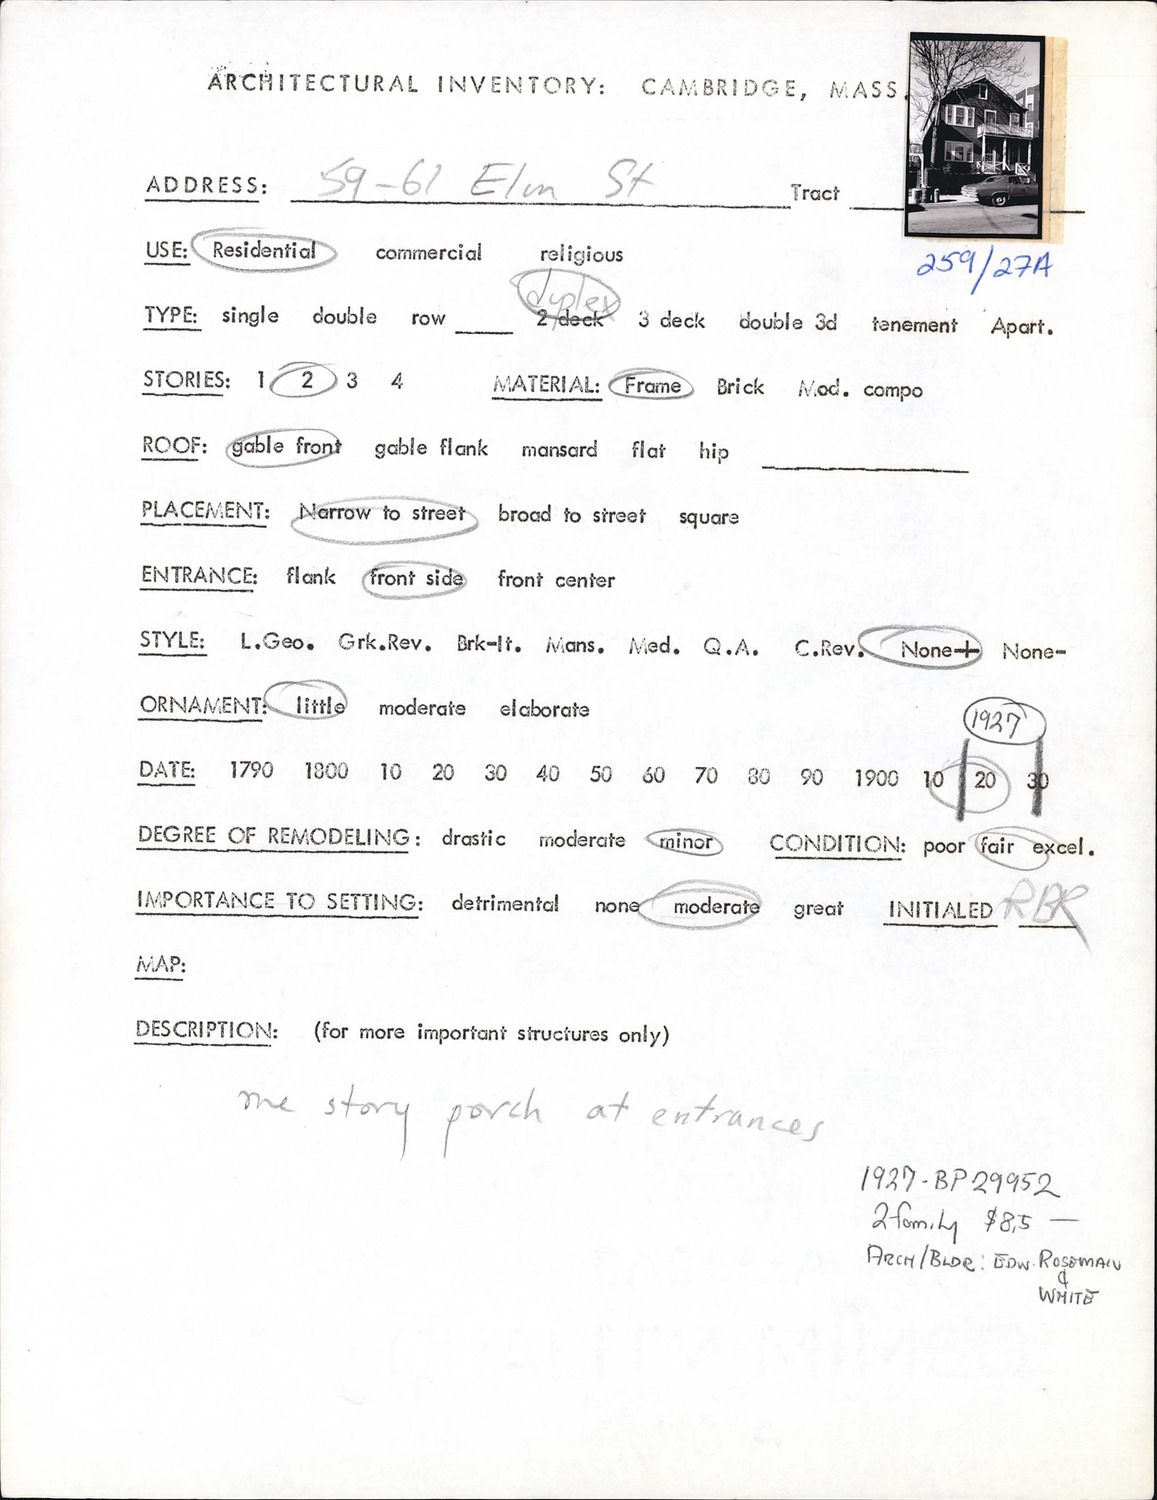 ARCHITECTURAL INVENTORY: CAMBRIDGE, MASS.
ADDRESS: 59-61 Elm St Tract
259/27A
USE: Residential commercial religious
duplex
TYPE: single double row ____ 2 deck 3 deck double 3d tenement Apart.
STORIES: 1 2 3 4 MATERIAL: Frame Brick Mod. compo
ROOF: gable front gable flank mansard flat hip
PLACEMENT: Narrow to street broad to street square
ENTRANCE: flank front side front center
STYLE: L.Geo. Grk.Rev. Brk-It. Mans. Med. Q.A. C.Rev. None+ None-
ORNAMENT: little moderate elaborate
1927
DATE: 1790 1800 10 20 30 40 50 60 70 80 90 1900 10 20 30
DEGREE OF REMODELING: drastic moderate minor CONDITION: poor fair excel.
IMPORTANCE TO SETTING: detrimental none moderate great INITIALED RBR
MAP:
DESCRIPTION: (for more important structures only)
one story porch at entrances
1927-BP 29952
2 family $8,5 —
ARCH/BLDR: EDW. ROSEMAN
&
WHITE